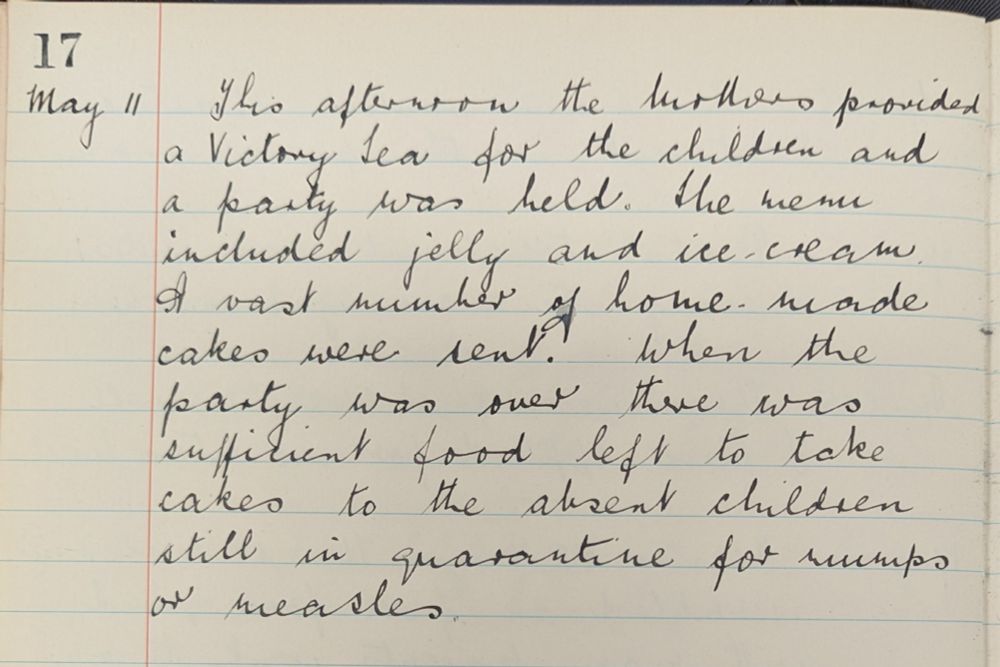 17
May 11 This afternoon the Mothers provided
a Victory Tea for the children and
a party was held. The menu
included jelly and ice-cream.
A vast number of home-made
cakes were sent. When the
party was over there was
sufficient food left to take
cakes to the absent children
still in quarantine for mumps
or measles.